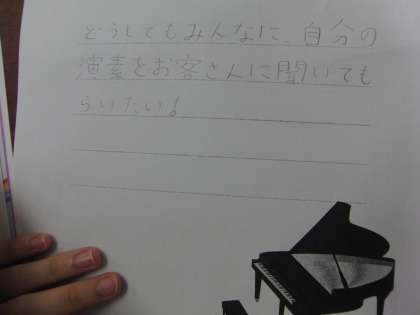 どうしてもみんなに、自分の
演奏をお客さんに聞いても
らいたい!